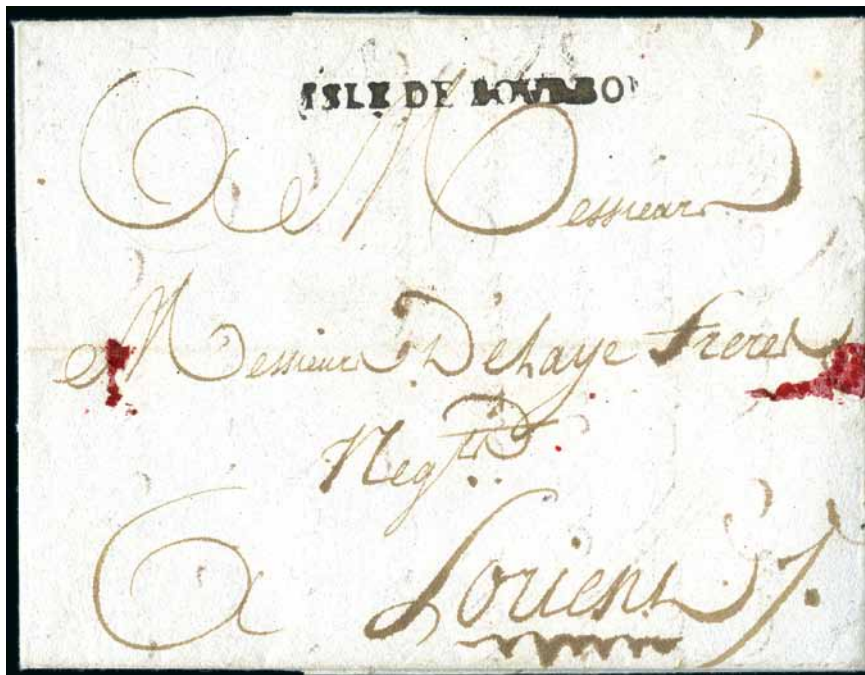 ISLE DE BOVRBO
A Messieurs
Messieurs Delaye freres
Negts
A Lorient